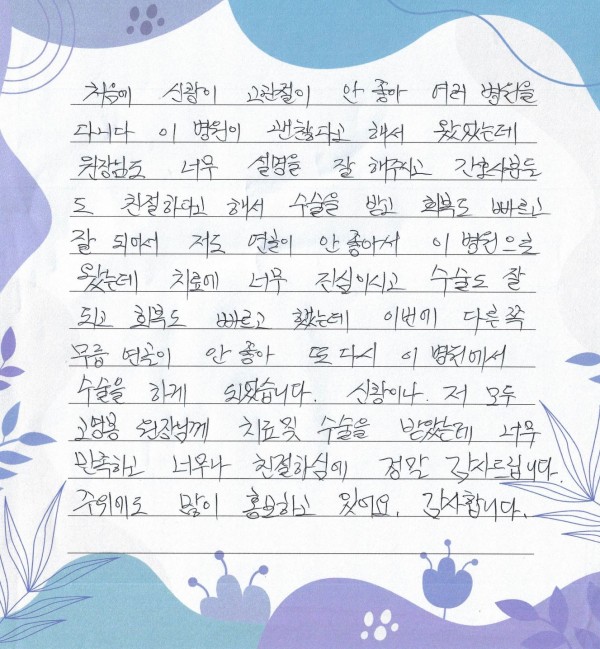 처음에 신랑이 고관절이 안 좋아 여러 병원을
다니다 이 병원이 괜찮다고 해서 왔었는데
원장님도 너무 설명을 잘 해주시고 간호사분들
도 친절하다고 해서 수술을 받고 회복도 빠르고
잘 되어서 저도 연골이 안 좋아서 이 병원으로
왔는데 치료에 너무 진심이시고 수술도 잘
되고 회복도 빠르고 했는데 이번에 다른쪽
무릎 연골이 안 좋아 또 다시 이 병원에서
수술을 하게 되었습니다. 신랑이나. 저 모두
고영용 원장님께 치료및 수술을 받았는데 너무
만족하고 너무나 친절하심에 정말 감사드립니다.
주위에도 많이 홍보하고 있어요. 감사합니다.